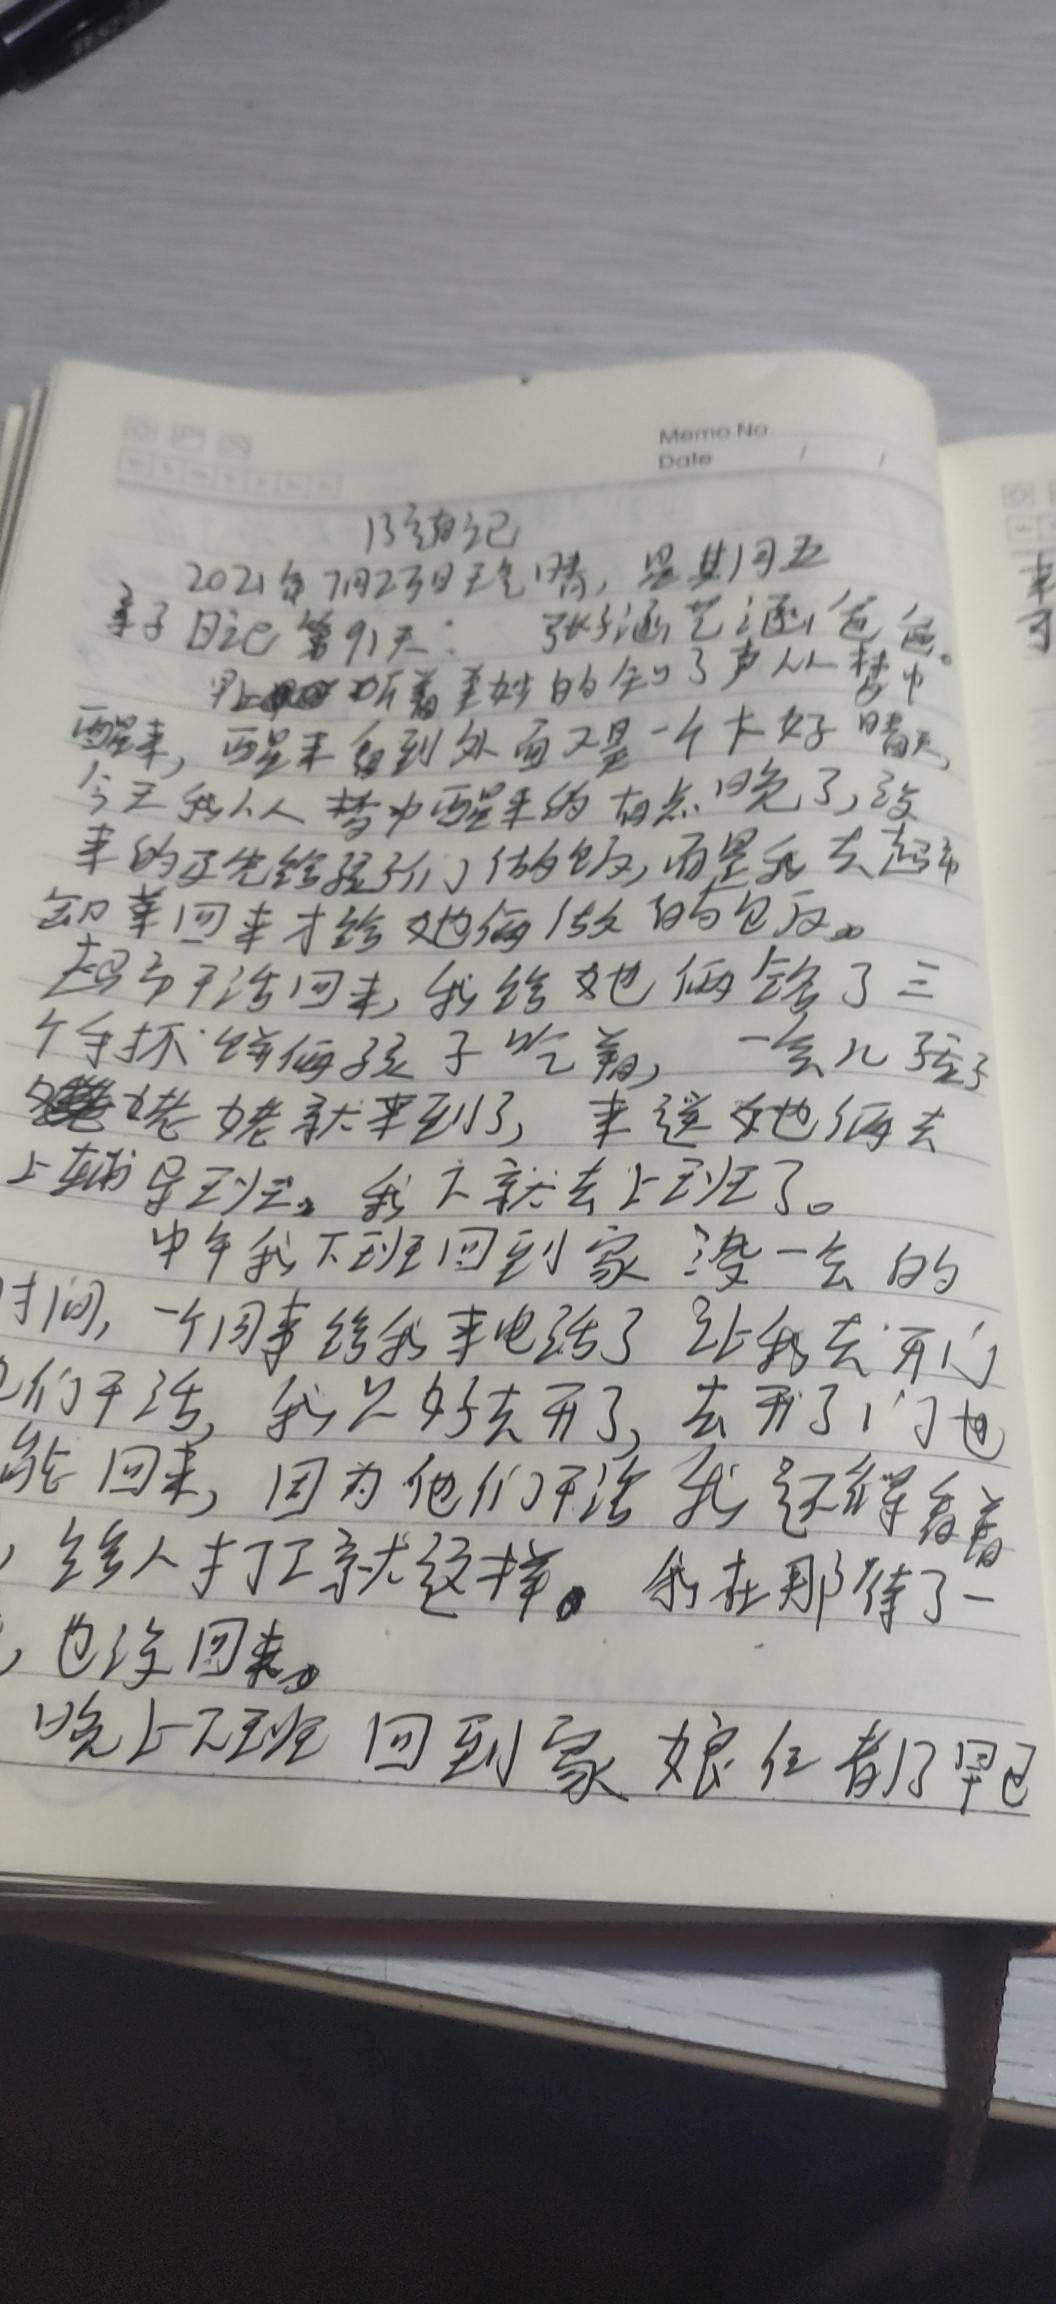 Memo No
Date / /
陪读日记
2021年7月23日天气晴,星期五
亲子日记第91天: 张子涵艺涵爸爸。
早上听着美妙的知了声从梦中
醒来,醒来看到外面又是一个大好晴天,
今天我从梦中醒来的有点晚了,没
来的及先给孩子们做饭,而是我去超市
卸菜回来才给她俩做的饭。
超市干活回来,我给她俩烙了三
个手抓饼俩孩子吃着,一会儿孩子
姥姥就来到了,来送她俩去
上辅导班。我才就去上班了。
中午我下班回到家没一会的
时间,一个同事给我来电话了让我去开门
他们干活,我只好去开了,去开了门也
能回来,因为他们干活我还得看着
,给人打工就这样。我在那待了一
,也没回来。
晚上下班回到家娘仨都早已